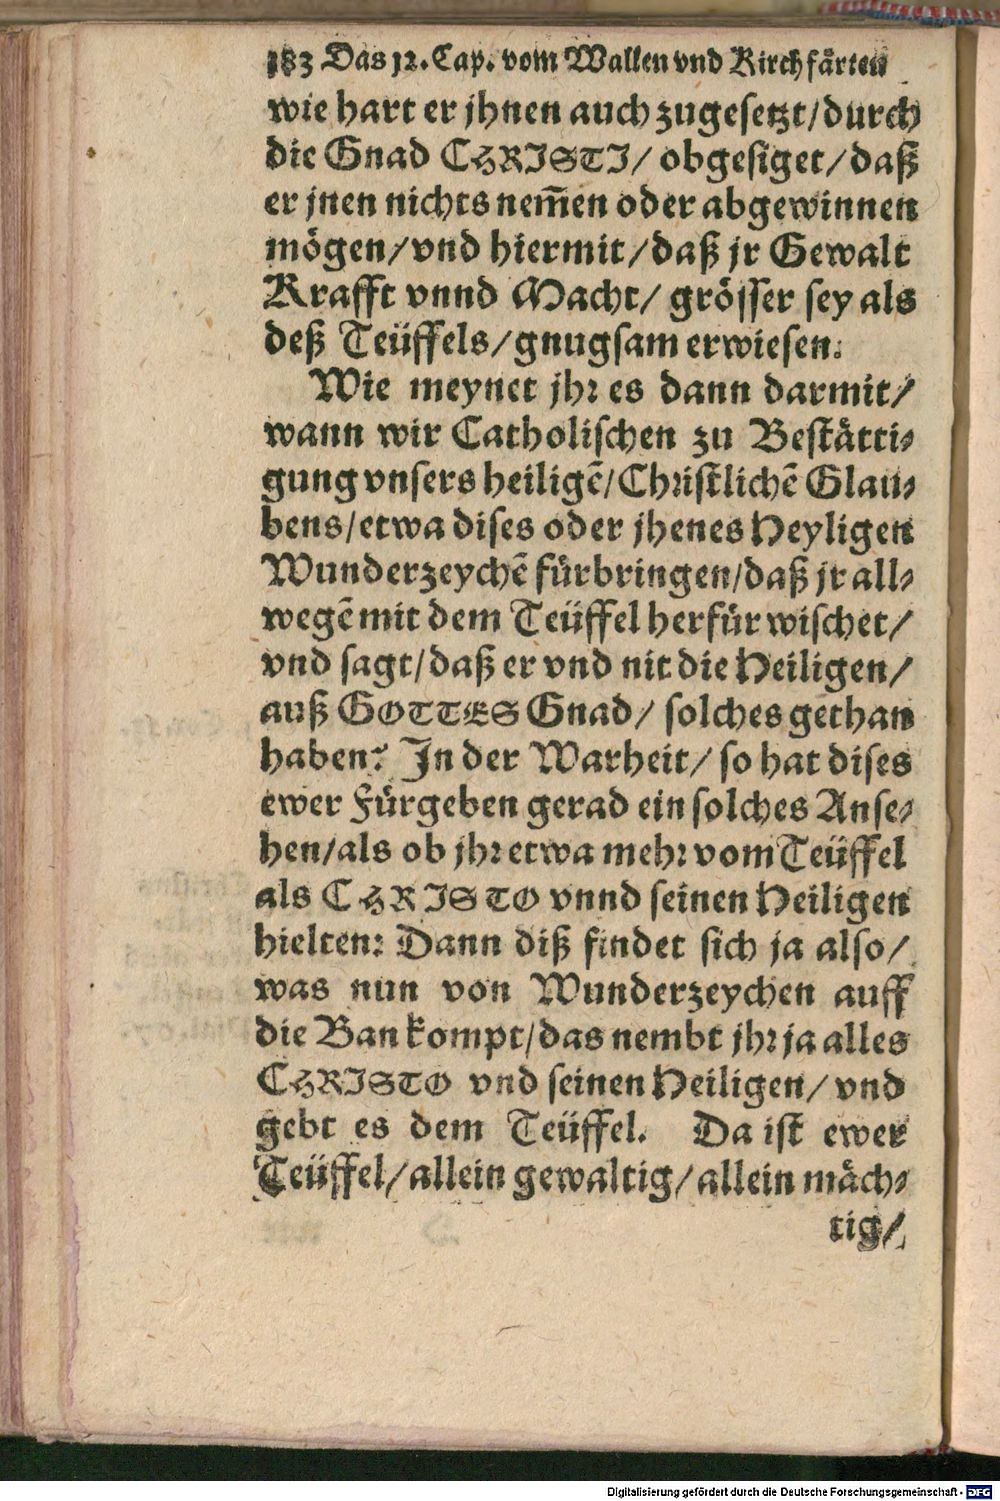 183 Das 12. Cap. vom Wallen vnd Kirchfärten
wie hart er jhnen auch zugesetzt/durch
die Gnad CHRISTI/ obgesiget/daß
er jnen nichts nem̃en oder abgewinnen
mögen/vnd hiermit/daß jr Gewalt
Krafft vnnd Macht/ grösser sey als
deß Teüffels/gnugsam erwiesen.
Wie meynet jhr es dann darmit/
wann wir Catholischen zu Bestätti-
gung vnsers heiligẽ/Christlichẽ Glau-
bens/etwa dises oder jhenes Heyligen
Wunderzeychẽ fürbringen/daß jr all-
wegẽ mit dem Teüffel herfür wischet/
vnd sagt/daß er vnd nit die Heiligen/
auß GOTTES Gnad/ solches gethan
haben? In der Warheit/ so hat dises
ewer Fürgeben gerad ein solches Anse-
hen/als ob jhr etwa mehr vom Teüffel
als CHRISTO vnnd seinen Heiligen
hielten: Dann diß findet sich ja also/
was nun von Wunderzeychen auff
die Ban kompt/das nembt jhr ja alles
CHRISTO vnd seinen Heiligen/ vnd
gebt es dem Teüffel. Da ist ewer
Teüffel/allein gewaltig/allein mäch-
tig/
Digitalisierung gefördert durch die Deutsche Forschungsgemeinschaft - DFG